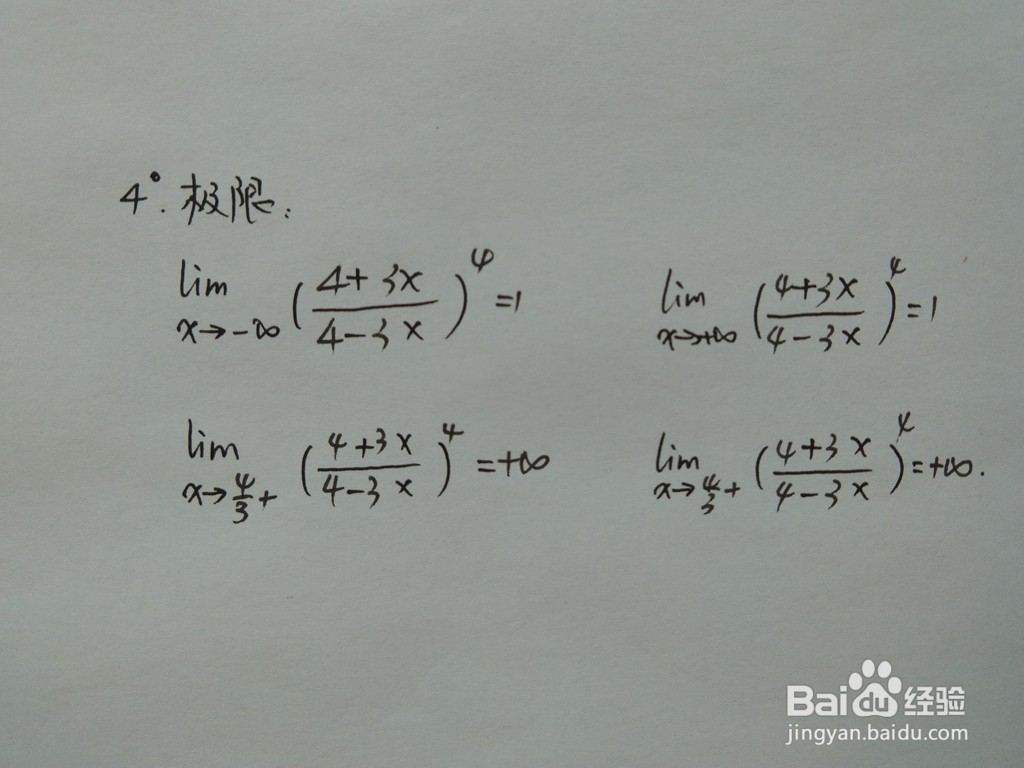 4°. 极限:
lim x→-∞ (4+3x / 4-3x)^4 =1
lim x→+∞ (4+3x / 4-3x)^4 =1
lim x→4/3+ (4+3x / 4-3x)^4 =+∞
lim x→4/3+ (4+3x / 4-3x)^4 =+∞.
Baidu经验
jingyan.baidu.com